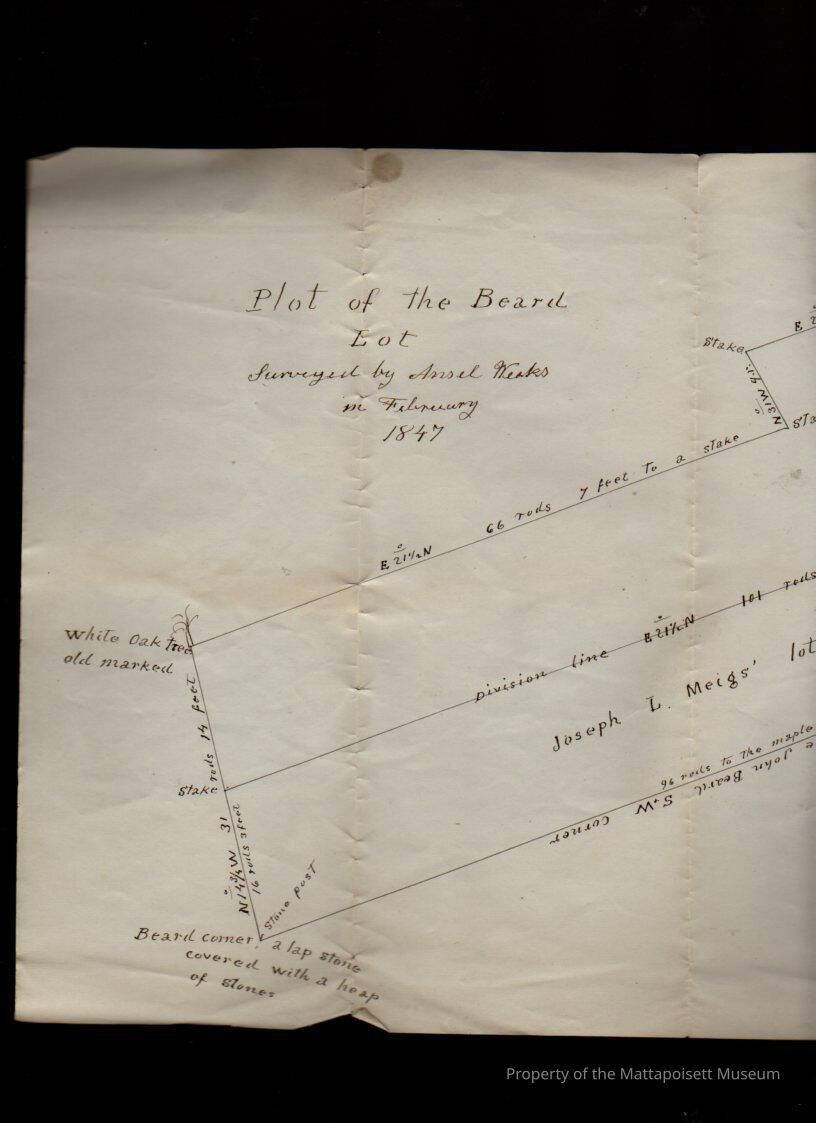 Plot of the Beard
Lot
Surveyed by Ansel Weeks
in February
1847
E 2
Stake
N 31 W 4 r.
Sta
E 21 1/2 N 66 rods 7 feet To a stake
White Oak tree
old marked
Division line E 21 1/2 N 101 rods
Joseph L. Meigs' lot
Stake
N 14 3/4 W 31 rods 14 feet
16 rods 3 feet
96 rods to the maple
e John Beard S.W Corner
Stone post
Beard corner, a lap stone
covered with a heap
of stones
Property of the Mattapoisett Museum